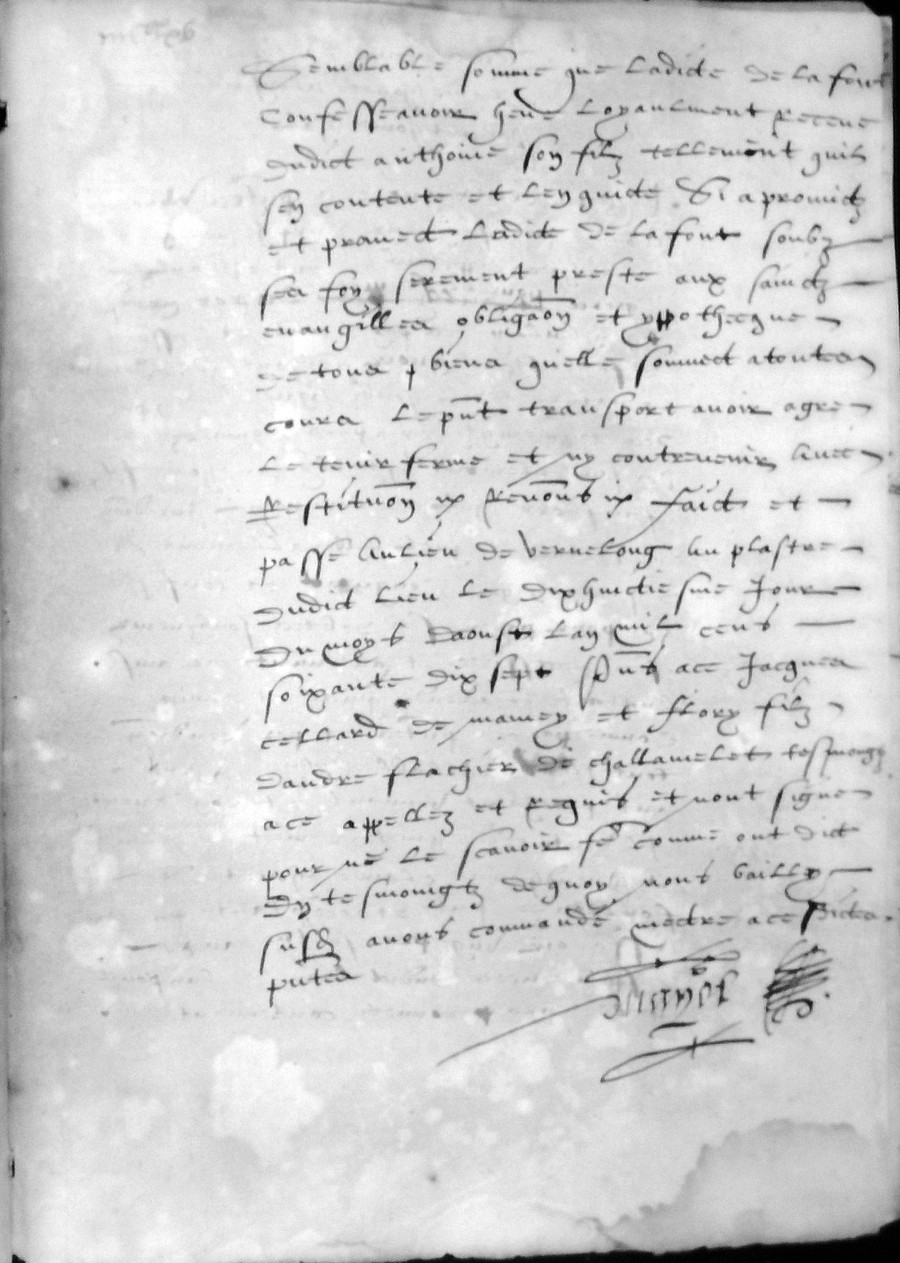 Semblable somme que ladicte de la font
Confesse avoir heue loyaulment Receue
dudict anthoine son filz tellement quil
sen contente et len quicte Si a promictz
et promect ladicte de la font soubz
ses foy serement preste aux sainctz
evangilles obligaon et yppothecque
de tous biens quelle soumect a toutes
cours le pnt transport avoir agre
le tenir ferme et ny contrevenir avec
Restituon ix Renons ix faict et
passe au lieu de vernelong au plastre
dudict lieu le dixhuictiesme Jour
du moys daoust lan mil cens
soixante dix sept pnts a ce Jacques
cellard de mamey et flory filz
dandre flachier de challamelet tesmongz
a ce appellez et Requis et nont signe
pour ne le scavoir fe comme ont dict
En tesmoingtz de quoy nous bailly
susd avons commande mectre a ces dictes
pntes